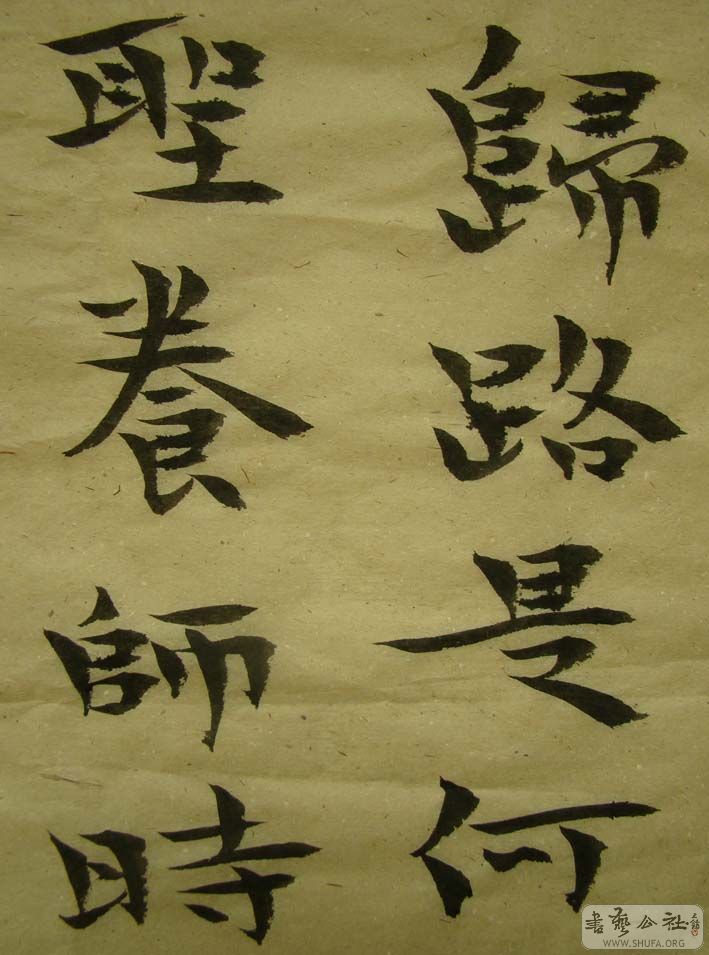 歸路是何
聖養師時
書藝公社
WWW.SHUFA.ORG